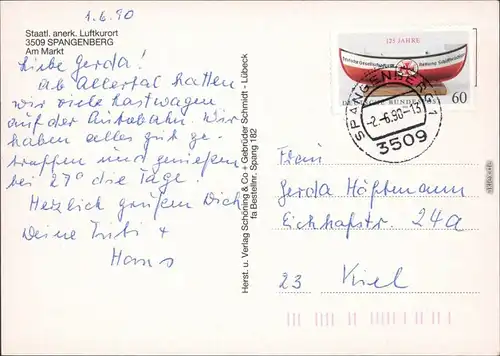 1.6.90
Staatl. anerk. Luftkurort
3509 SPANGENBERG
Am Markt
Liebe Gerda!
Ab Allertal hatten
wir viele Lastwagen
auf der Autobahn. Wir
haben alles gut ge-
troffen und genießen
bei 27° die Tage.
Herzlich grüßen Dich
Deine +
Hans
Herst. u. Verlag Schöning & Co + Gebrüder Schmidt - Lübeck
fa Bestellnr. Spang 182
125 JAHRE
Deutsche Gesellschaft Rettung Schiffbrüchiger
DEUTSCHE BUNDESPOST
60
SPANGENBERG 1
-2.-6.90-13
3509
Frau
Gerda
24a
23 Kiel